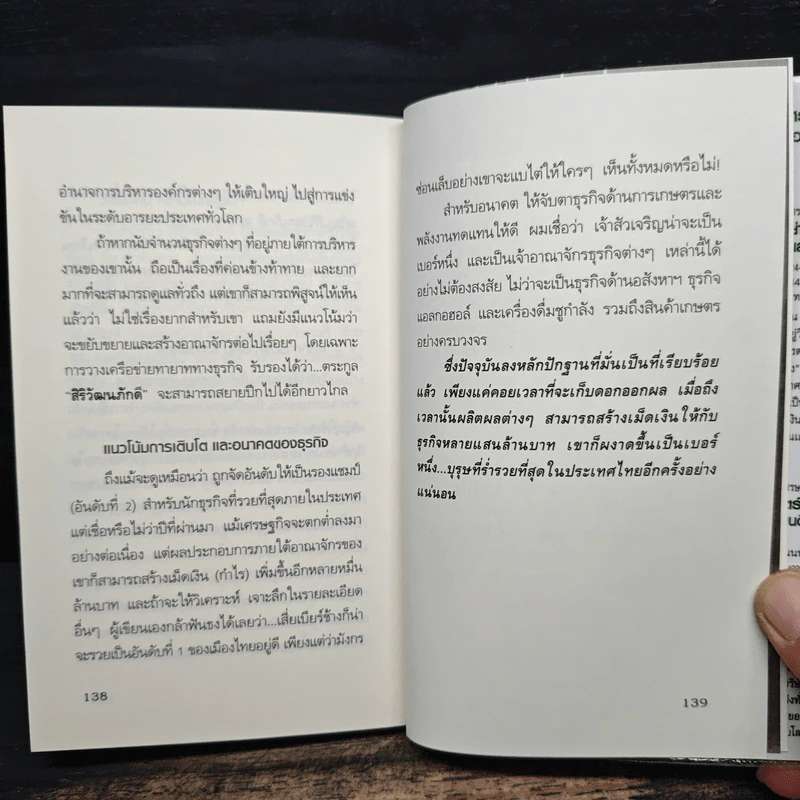 อำนาจการบริหารองค์กรต่างๆ ให้เติบใหญ่ ไปสู่การแข่ง
ขันในระดับอารยะประเทศทั่วโลก
ถ้าหากนับจำนวนธุรกิจต่างๆ ที่อยู่ภายใต้การบริหาร
งานของเขานั้น ถือเป็นเรื่องที่ค่อนข้างท้าทาย และยาก
มากที่จะสามารถดูแลทั่วถึง แต่เขาก็สามารถพิสูจน์ให้เห็น
แล้วว่า ไม่ใช่เรื่องยากสำหรับเขา แถมยังมีแนวโน้มว่า
จะขยับขยายและสร้างอาณาจักรต่อไปเรื่อยๆ โดยเฉพาะ
การวางเครือข่ายทายาททางธุรกิจ รับรองได้ว่า...ตระกูล
"สิริวัฒนภักดี" จะสามารถสยายปีกไปได้อีกยาวไกล
แนวโน้มการเติบโต และอนาคตของธุรกิจ
ถึงแม้จะดูเหมือนว่า ถูกจัดอันดับให้เป็นรองแชมป์
(อันดับที่ 2) สำหรับนักธุรกิจที่รวยที่สุดภายในประเทศ
แต่เชื่อหรือไม่ว่าปีที่ผ่านมา แม้เศรษฐกิจจะตกต่ำลงมา
อย่างต่อเนื่อง แต่ผลประกอบการภายใต้อาณาจักรของ
เขาก็สามารถสร้างเม็ดเงิน (กำไร) เพิ่มขึ้นอีกหลายหมื่น
ล้านบาท และถ้าจะให้วิเคราะห์ เจาะลึกในรายละเอียด
อื่นๆ ผู้เขียนเองกล้าฟันธงได้เลยว่า...เสี่ยเบียร์ช้างก็น่า
จะรวยเป็นอันดับที่ 1 ของเมืองไทยอยู่ดี เพียงแต่ว่ามังกร
138
ซ่อนเล็บอย่างเขาจะแบไต๋ให้ใครๆ เห็นทั้งหมดหรือไม่!
สำหรับอนาคต ให้จับตาธุรกิจด้านการเกษตรและ
พลังงานทดแทนให้ดี ผมเชื่อว่า เจ้าสัวเจริญน่าจะเป็น
เบอร์หนึ่ง และเป็นเจ้าอาณาจักรธุรกิจต่างๆ เหล่านี้ได้
อย่างไม่ต้องสงสัย ไม่ว่าจะเป็นธุรกิจด้านอสังหาฯ ธุรกิจ
แอลกอฮอล์ และเครื่องดื่มชูกำลัง รวมถึงสินค้าเกษตร
อย่างครบวงจร
ซึ่งปัจจุบันลงหลักปักฐานที่มั่นเป็นที่เรียบร้อย
แล้ว เพียงแค่คอยเวลาที่จะเก็บดอกออกผล เมื่อถึง
เวลานั้นผลิตผลต่างๆ สามารถสร้างเม็ดเงินให้กับ
ธุรกิจหลายแสนล้านบาท เขาก็ผงาดขึ้นเป็นเบอร์
หนึ่ง...บุรุษที่ร่ำรวยที่สุดในประเทศไทยอีกครั้งอย่าง
แน่นอน
139